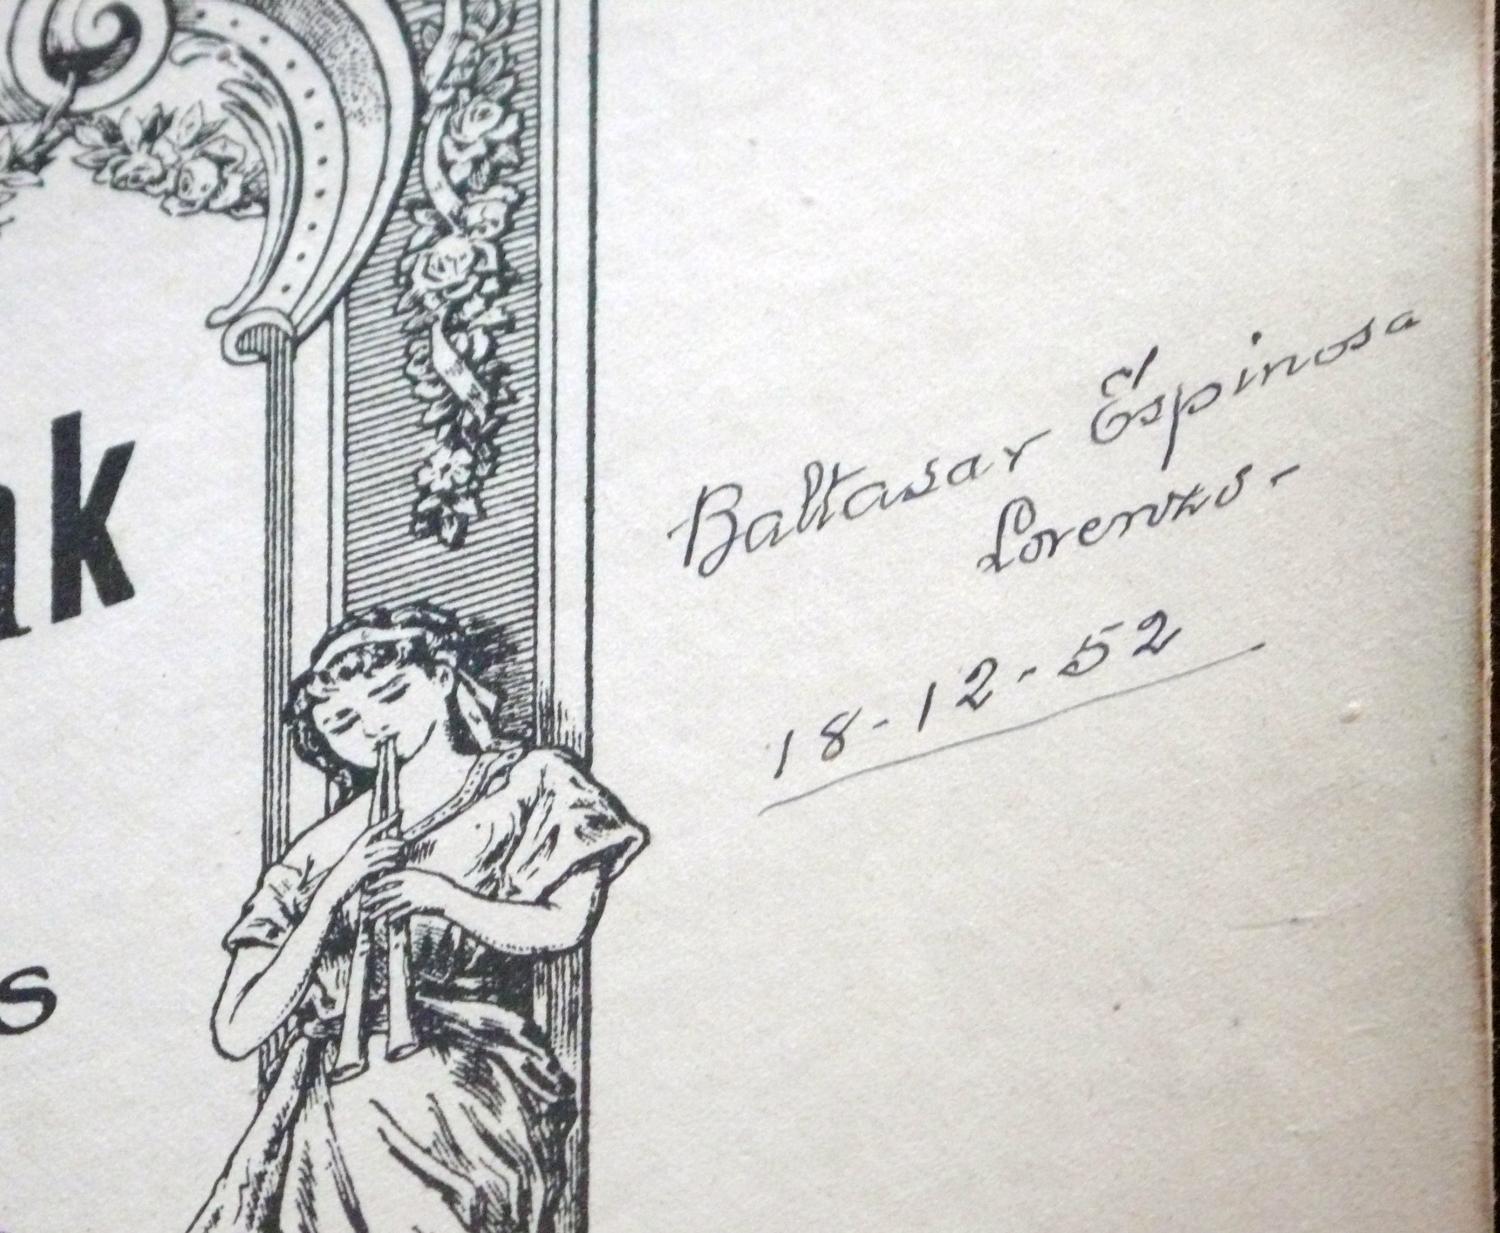 ak
s
Baltasar Espinosa
Lorenzo -
18-12-52